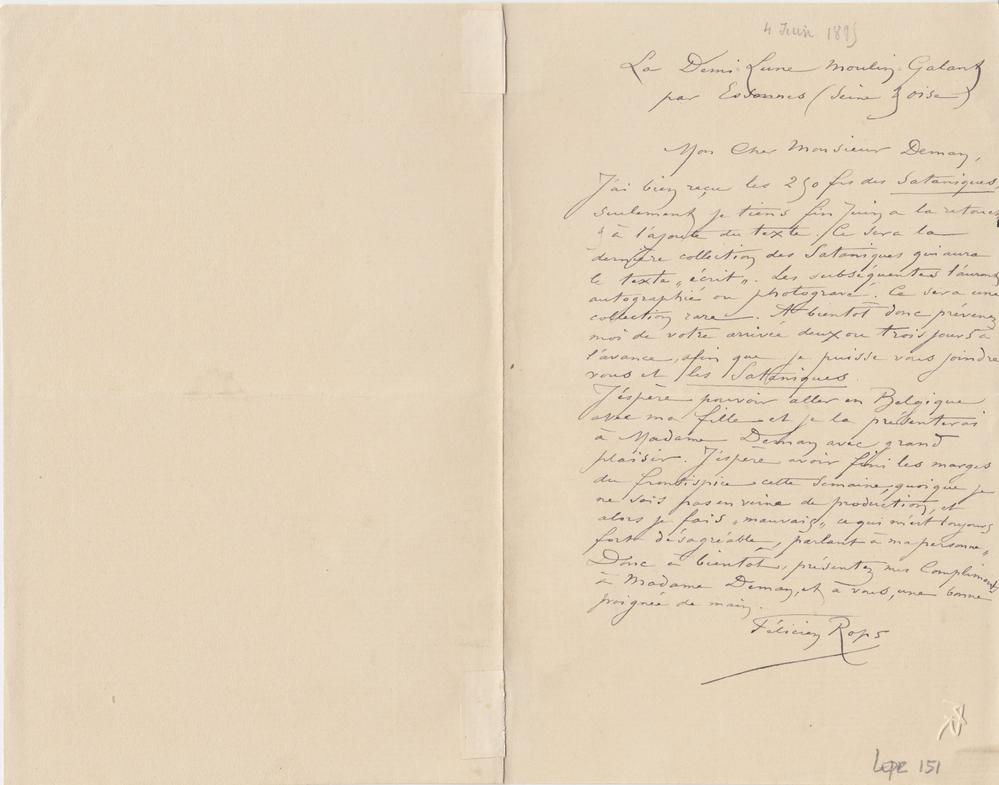 4 Juin 1895
La Demi-Lune Moulin-Galant
par Essonnes (Seine & Oise)
Mon Cher Monsieur Deman,
J'ai bien reçu les 250 frs des Sataniques
seulement je tiens fin Juin a la retouche
& à l'ajoute du texte. Ce sera la
dernière collection des Sataniques qui aura
le texte „écrit„. Les subséquentes l'auront
autographié ou photogravé. Ce sera une
collection rare. A bientôt donc prévenez
moi de votre arrivée deux ou trois jours à
l'avance, afin que je puisse vous joindre
vous et les Sataniques.
J'espère pouvoir aller en Belgique
avec ma fille et je la présenterai
à Madame Deman avec grand
plaisir. J'espère avoir fini les marges
du frontispice cette semaine, quoique je
ne sois pas en veine de production, et
alors je fais „mauvais„ ce qui m'est toujours
fort désagréable, parlant à ma personne„
Donc à bientôt, présentez mes Compliments
à Madame Deman, et à vous, une bonne
poignée de main.
Félicien Rops
LEpr 151